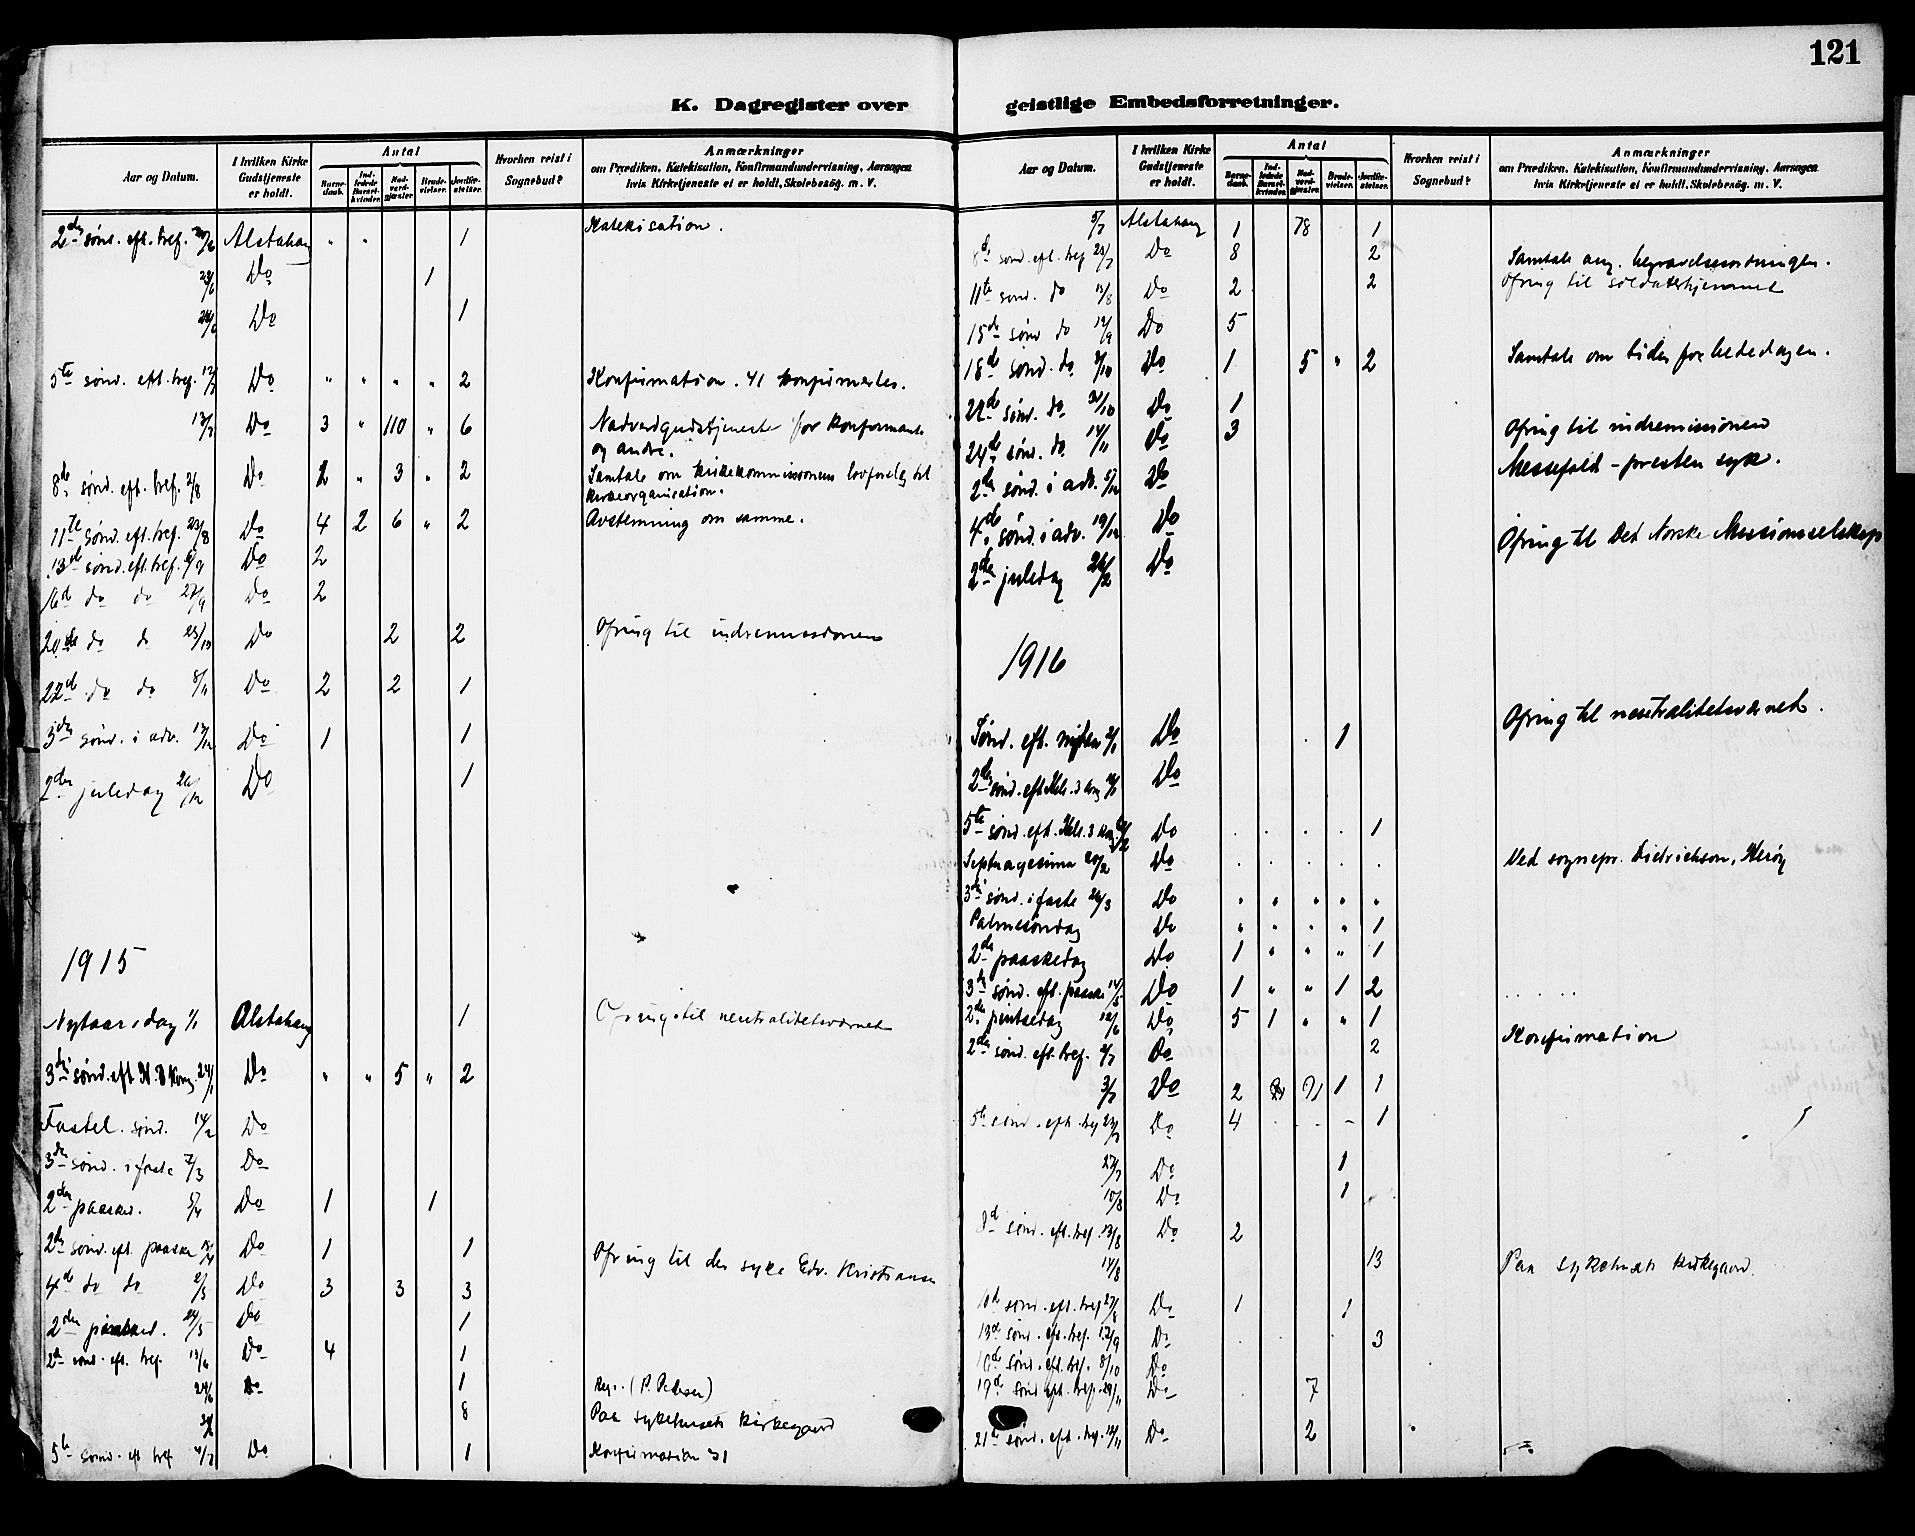 121
K. Dagregister over geistlige Embedsforretninger.
Aar og Datum. I hvilken Kirke Gudstjeneste er holdt. Antal Barnedaab. Indledede Barselkvinder. Nadverdgjæster. Brudevielser. Jordfæstelser. Hvorhen reist i Sognebud? Anmærkninger om Prædiken, Katekisation, Konfirmandundervisning, Aarsagen hvis Kirketjeneste ei er holdt, Skolebesøg. m. V.
2den sønd. eft. tref. Alstahaug " " 1 Katekisation.
Do 1
Do 1
5te sønd. eft. tref. 12/7 Do " " " " 2 Konfirmation. 41 konfirmertes.
13/7 Do 3 " 110 " 6 Nadverdgudstjeneste for konfirmante
og andre.
8de sønd. eft. tref. 2/8 Do 2 " 3 " 2 Samtale om kirkekommissionens lovforslag til
kirkeorganisation.
11te sønd. eft. tref. 23/8 Do 4 2 6 " 2 Avstemning om samme.
13de sønd. eft. tref. 6/9 Do 2
16d do do 27/9 Do 2
20de do do 25/10 Do 2 2 Ofring til indremissionen
22de do do 8/11 Do 2 2 1
3die sønd. i adv. 13/12 Do 1 1
2den juledag 26/12 Do 1
1915
Nytaarsdag 1/1 Alstahaug 1 Ofring til neutralitetsværnet
3die sønd. eft. H. 3 Kong. 24/1 Do " " 5 " 2
Fastel. sønd. 14/2 Do
3die sønd. i faste 7/3 Do
2den paasked. 5/4 Do 1 1
2den sønd. eft. paaske 18/4 Do 1 1 Ofring til den syke Edv. Kristiansen
4de do do 2/5 Do 3 3 3
2den 24/5 Do 1
2den sønd. eft. tref. 13/6 Do 4 1
24/6 Do 1 (P. Pedersen)
8 Paa sykehusets kirkegaard
5te sønd. eft. tref 4/7 Do 1 Konfirmation 31
Aar og Datum. I hvilken Kirke Gudstjeneste er holdt. Antal Barnedaab. Indledede Barselkvinder. Nadverdgjæster. Brudevielser. Jordfæstelser. Hvorhen reist i Sognebud? Anmærkninger om Prædiken, Katekisation, Konfirmandundervisning, Aarsagen hvis Kirketjeneste ei er holdt, Skolebesøg. m. V.
5/7 Alstahaug 1 78 1
8d sønd. eft. tref 25/7 Do 8 2 Samtale ang. begravelsesordningen.
11te sønd. do 15/8 Do 2 2 Ofring til soldaterhjemmet
15de sønd do 12/9 Do 5
18de sønd. do 3/10 Do 1 5 " 2 Samtale om tiden for bededagen.
22de sønd. do 31/10 Do 1
24de sønd. do 14/11 Do 3 Ofring til indremissionen
2den sønd. i adv. 5/12 Do Messefald - presten syk.
4de sønd. i adv. 19/12 Do Ofring til Det Norske Missionsselskap
2den juledag 26/12 Do
1916
Sønd. eft. nytaar 2/1 Do 1 Ofring til neutralitetsværnet.
2den sønd. eft. Hel. 3 kong Do
5te sønd. eft. Hel. 3 kong. Do 1
Septuagesima 20/2 Do Ved sognepr. Didrichson, Herøy
3die sønd. i faste 26/3 Do " " " " "
Palmesøndag Do " " " " 1
2den paaskedag Do 1 " " " 1
3die sønd. eft. paaske 14/5 Do 1 " " 1 2
2den pintsedag 12/6 Do 5 1 " " 1
2den sønd. eft. tref. 2/7 Do 2 Konfirmation
3/7 Do 2 71 1 1
5te sønd. eft. tref 23/7 Do 4 1
27/7 Do 1
10/8 Do 1
8d sønd. eft. tref. 13/8 Do 2
14/8 13 Paa sykehusets kirkegaard.
10de sønd. eft. tref 27/8 Do 1 1
13de sønd. eft. tref. 17/9 Do 3
16de sønd. eft. tref. 8/10 Do
19de sønd. eft. tref. Do 7
21de sønd. eft. tref. 12/11 Do 2